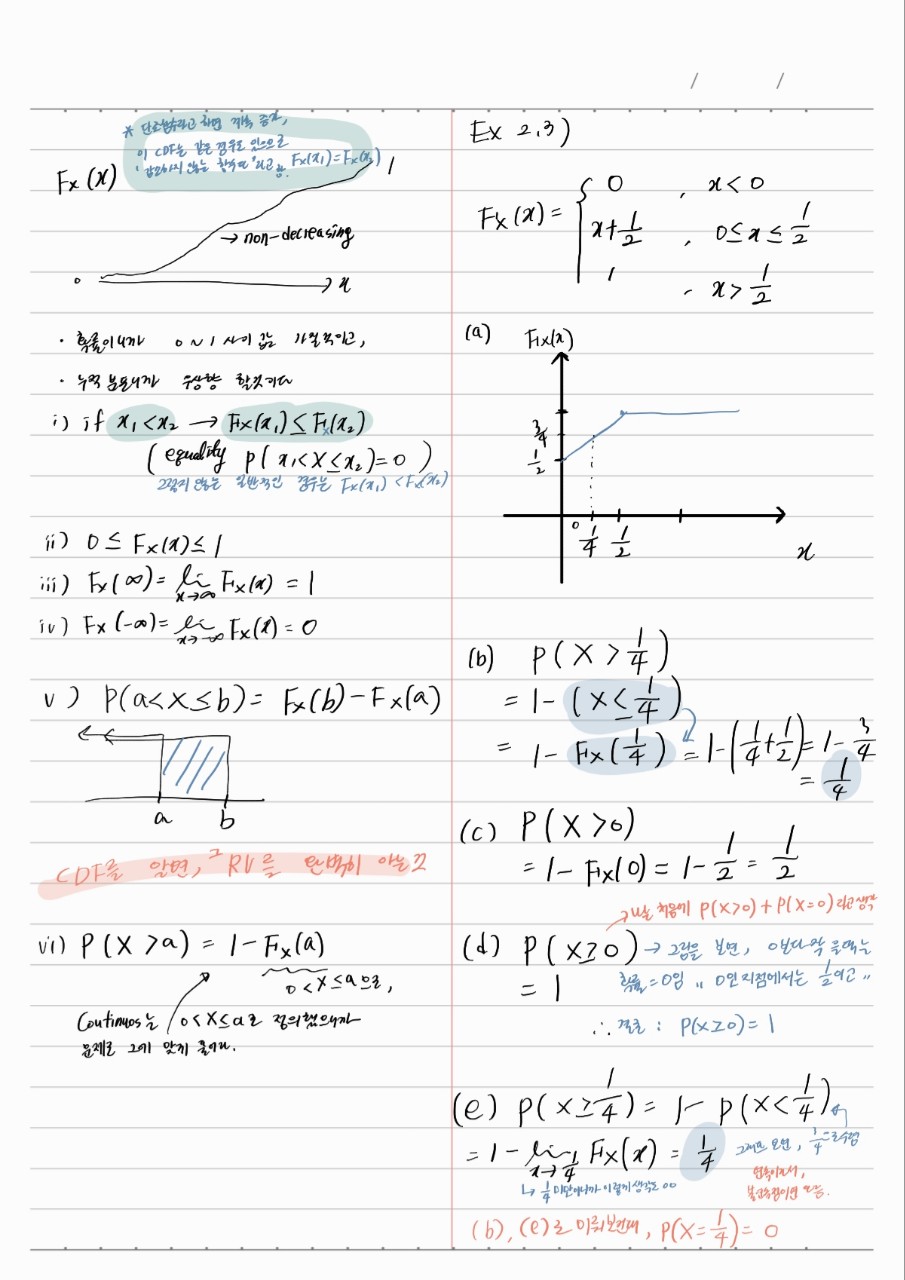 * 단조함수라고 하면 계속 증가,
이 CDF는 같은 경우도 있으므로
"감소하지 않는 함수"라고 Fx(x₁)=Fx(x₂)
Fx(x)
1
→ non-decreasing
0
x
· 확률이니까 0~1 사이 값 가질것이고,
· 누적 분포니까 우상향 할것이다
i) if x₁<x₂ → Fx(x₁) ≤ Fx(x₂)
( equality P(x₁<X≤x₂)=0 )
그렇지 않은 일반적인 경우는 Fx(x₁)<Fx(x₂)
ii) 0 ≤ Fx(x) ≤ 1
iii) Fx(∞) = lim x→∞ Fx(x) = 1
iv) Fx(-∞) = lim x→-∞ Fx(x) = 0
v) P(a<X≤b) = Fx(b)-Fx(a)
a b
CDF를 알면, 그 RV를 완벽히 아는것
vi) P(X>a) = 1-Fx(a)
0<X≤a으로,
Continuos는 0<X≤a로 정의했으니까
문제로 그에 맞게 풀어라.
Ex 2.3)
Fx(x) = { 0 , x<0
x+1/2 , 0≤x≤1/2
1 , x>1/2
(a) Fx(x)
3/4
1/2
0 1/4 1/2
x
(b) P(X>1/4)
= 1-(X≤1/4)
= 1-Fx(1/4) = 1-(1/4+1/2) = 1-3/4
= 1/4
(c) P(X>0)
= 1-Fx(0) = 1-1/2 = 1/2
→ 나는 처음에 P(X>0)+P(X=0)라고 생각
(d) P(X≥0) → 그림을 보면, 0보다 작을때는
= 1 확률=0임 "0인 지점에서는 1/2이고"
∴ 결론 : P(X≥0)=1
(e) P(X≥1/4) = 1-P(X<1/4)
= 1-lim x→1/4 Fx(x) = 1/4
그래프 보면, 1/4로 수렴
↳ 1/4 미만이니까 이렇게 생각도 oo
연속이라서,
(b), (e)로 미뤄보건대, P(X=1/4)=0